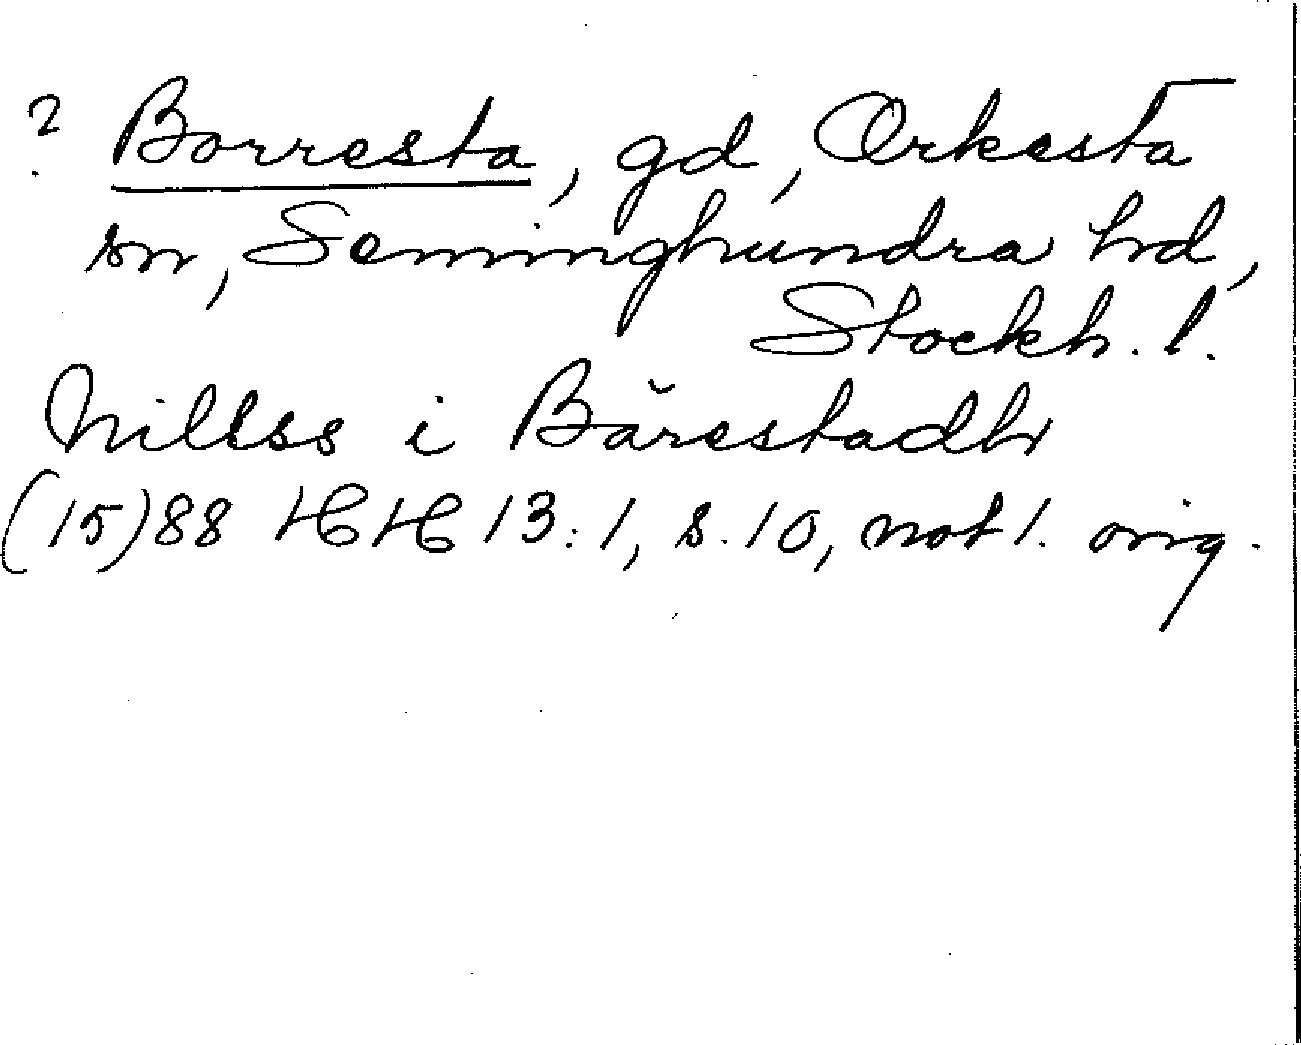 ? Borresta, gd, Orkesta
sn, Seminghundra hd,
Stockh. l.
Nilss i Bărestadh
(15)88 HH 13:1, s. 10, not 1. orig.